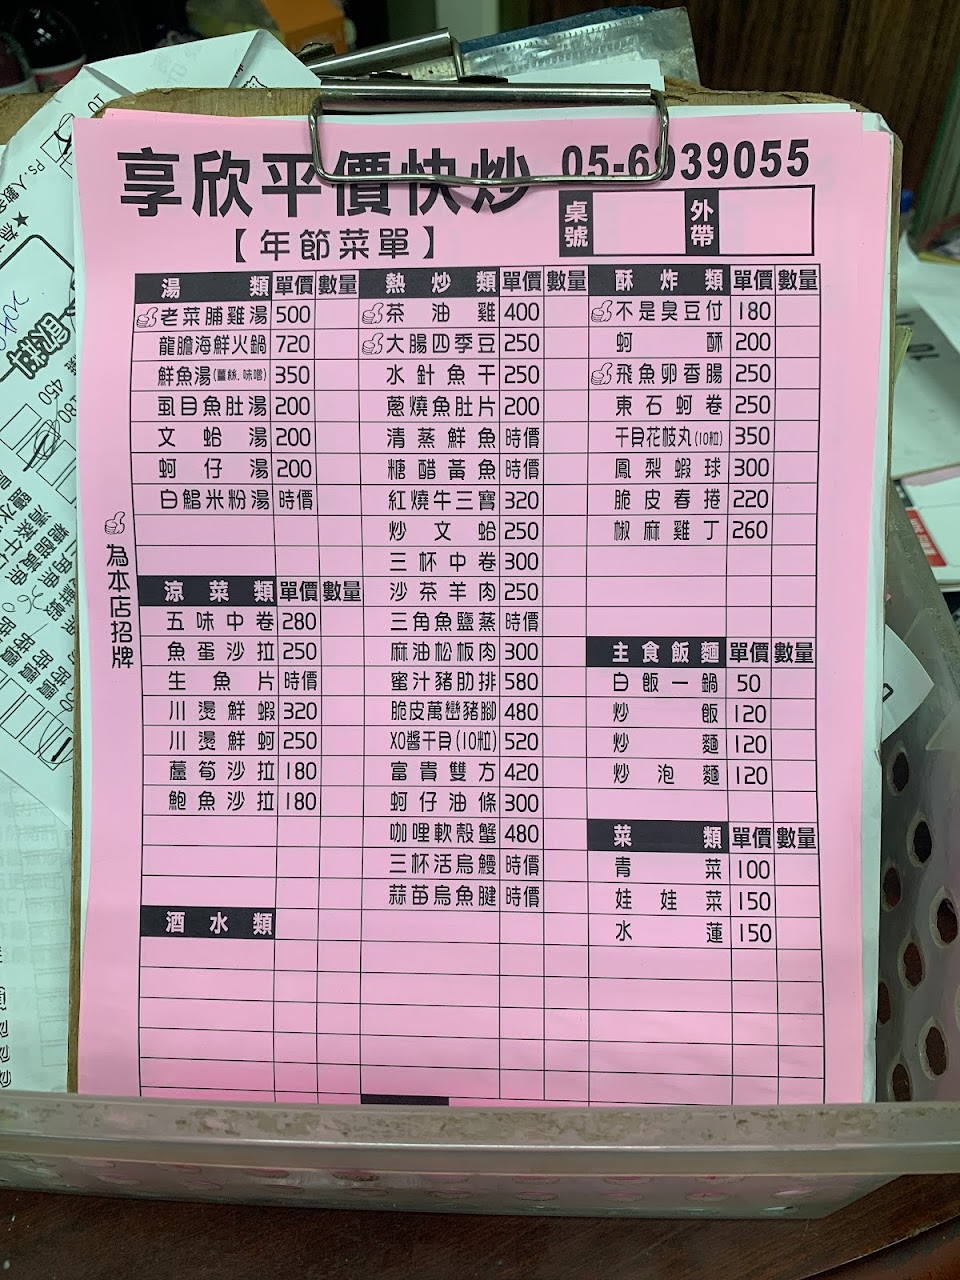 享欣平價快炒 05-6939055
【年節菜單】
桌號 外帶
湯類 單價 數量
老菜脯雞湯 500
龍膽海鮮火鍋 720
鮮魚湯(薑絲.味噌) 350
虱目魚肚湯 200
文蛤湯 200
蚵仔湯 200
白鯧米粉湯 時價
涼菜類 單價 數量
五味中卷 280
魚蛋沙拉 250
生魚片 時價
川燙鮮蝦 320
川燙鮮蚵 250
蘆筍沙拉 180
鮑魚沙拉 180
酒水類
熱炒類 單價 數量
茶油雞 400
大腸四季豆 250
水針魚干 250
蔥燒魚肚片 200
清蒸鮮魚 時價
糖醋黃魚 時價
紅燒牛三寶 320
炒文蛤 250
三杯中卷 300
沙茶羊肉 250
三角魚鹽蒸 時價
麻油松板肉 300
蜜汁豬肋排 580
脆皮萬巒豬腳 480
XO醬干貝(10粒) 520
富貴雙方 420
蚵仔油條 300
咖哩軟殼蟹 480
三杯活烏鰻 時價
蒜苗烏魚腱 時價
酥炸類 單價 數量
不是臭豆付 180
蚵酥 200
飛魚卵香腸 250
東石蚵卷 250
干貝花枝丸(10粒) 350
鳳梨蝦球 300
脆皮春捲 220
椒麻雞丁 260
主食飯麵 單價 數量
白飯一鍋 50
炒飯 120
炒麵 120
炒泡麵 120
菜類 單價 數量
青菜 100
娃娃菜 150
水蓮 150
為本店招牌